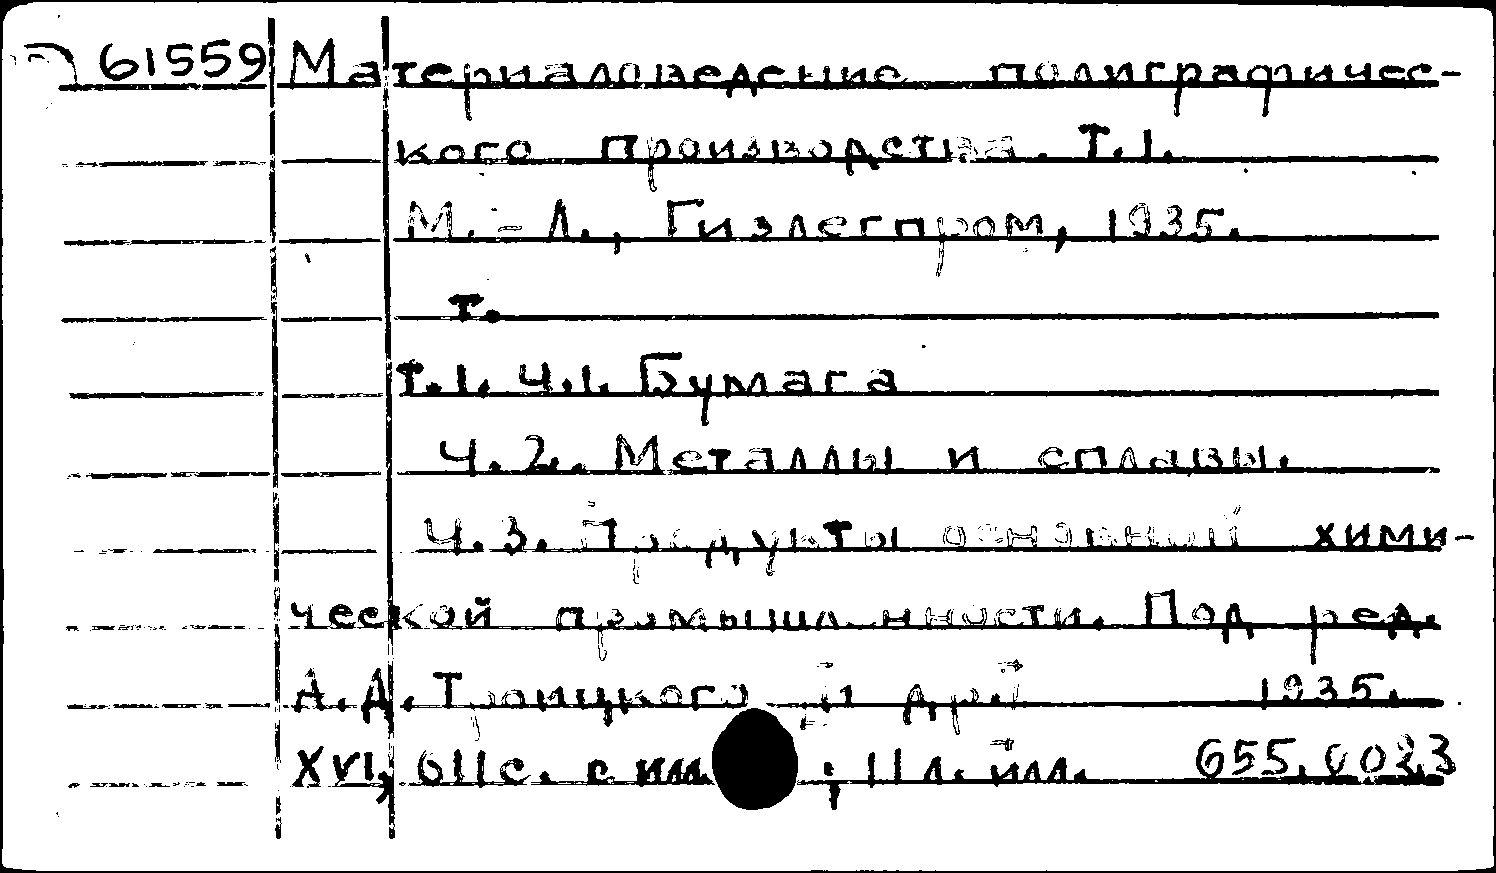 61559 Материаловедение полиграфичес-
кого производства. Т.1.
М.-Л., Гизлегпром, 1935.
т.
Т.1. Ч.1. Бумага
Ч.2. Металлы и сплавы.
Ч.3. Продукты основной хими-
ческой промышленности. Под ред.
А.Д. Троицкого [и др.] 1935.
XVI, 611с. с ил. ; 11 л. ил. 655.0023